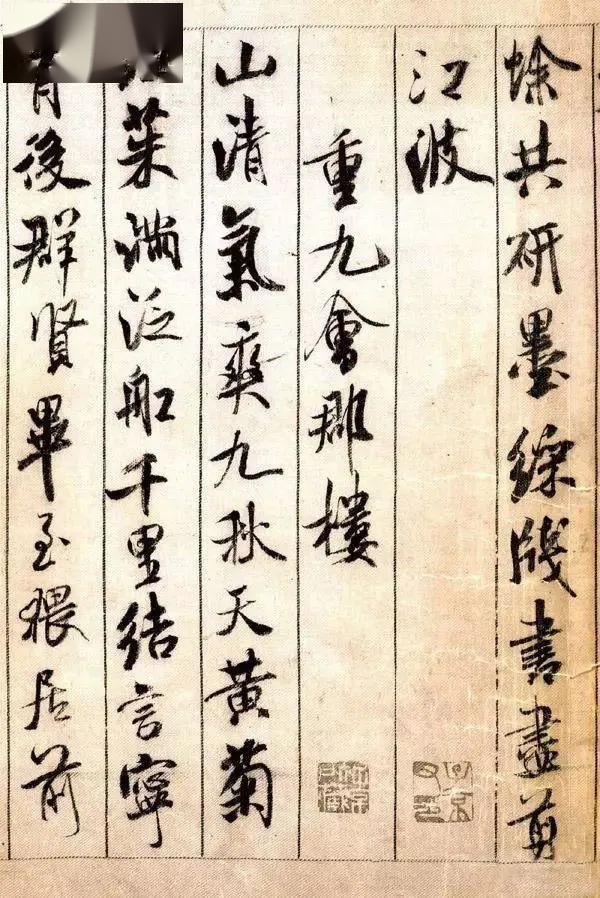 蜍共研墨綵牋書盡剪
江波
重九會郡樓
山清氣爽九秋天黃菊
茱滿泛船千里結言寧
後群賢畢至猥居前